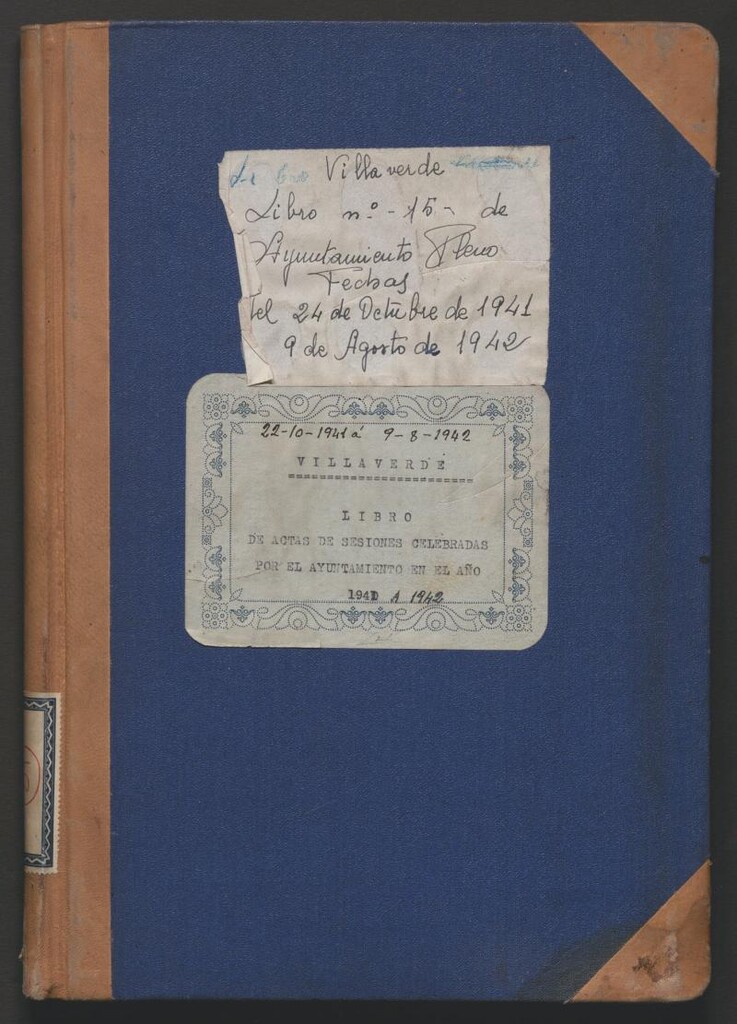 Villaverde
Libro nº - 15 - de
Ayuntamiento Pleno
Fechas
del 24 de Octubre de 1941
9 de Agosto de 1942
22-10-1941 á 9-8-1942
VILLAVERDE
=======================
LIBRO
DE ACTAS DE SESIONES CELEBRADAS
POR EL AYUNTAMIENTO EN EL AÑO
1941 A 1942